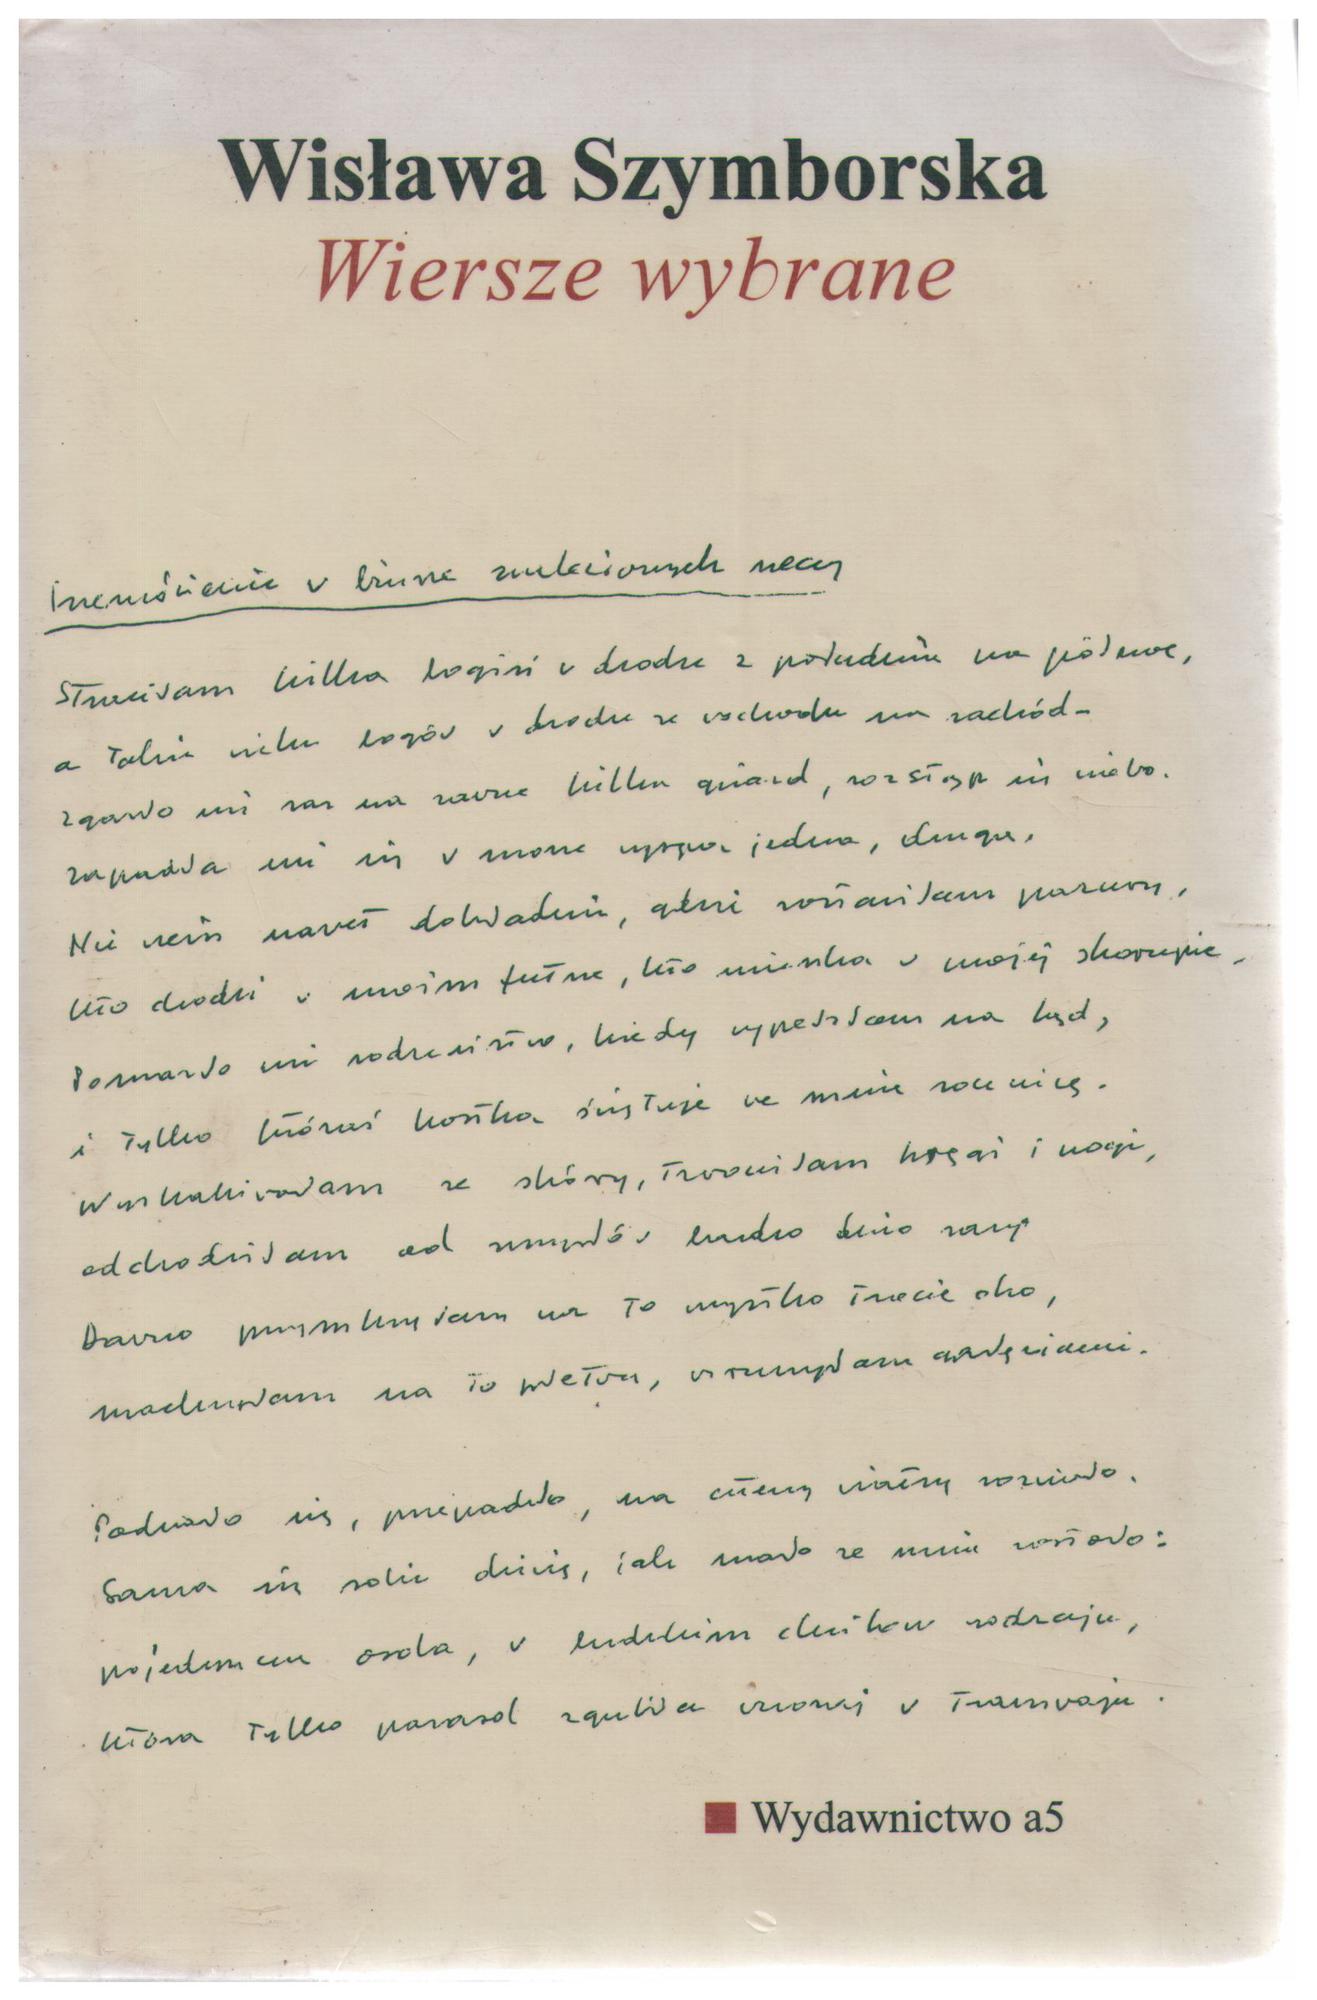 Wisława Szymborska
Wiersze wybrane
Przemówienie w biurze znalezionych rzeczy
Straciłam kilka bogiń w drodze z południa na północ,
a także wielu bogów w drodze ze wschodu na zachód.
Zgasło mi raz na zawsze kilka gwiazd, rozstąp się niebo.
Zapadła mi się w morze wyspa jedna, druga.
Nie wiem nawet dokładnie, gdzie zostawiłam pazury,
kto chodzi w moim futrze, kto mieszka w mojej skorupie.
Pomarło mi rodzeństwo, kiedy wypełzłam na ląd,
i tylko któraś kostka świętuje we mnie rocznicę.
Wyskakiwałam ze skóry, trwoniłam kręgi i nogi,
odchodziłam od zmysłów bardzo dużo razy.
Dawno przymknęłam na to wszystko trzecie oko,
machnęłam na to płetwą, wzruszyłam gałęziami.
Podziało się, przepadło, na cztery wiatry rozwiało.
Sama się sobie dziwię, jak mało ze mnie zostało:
pojedyncza osoba, w ludzkim chwilowo rodzaju,
która tylko parasol zgubiła wczoraj w tramwaju.
Wydawnictwo a5